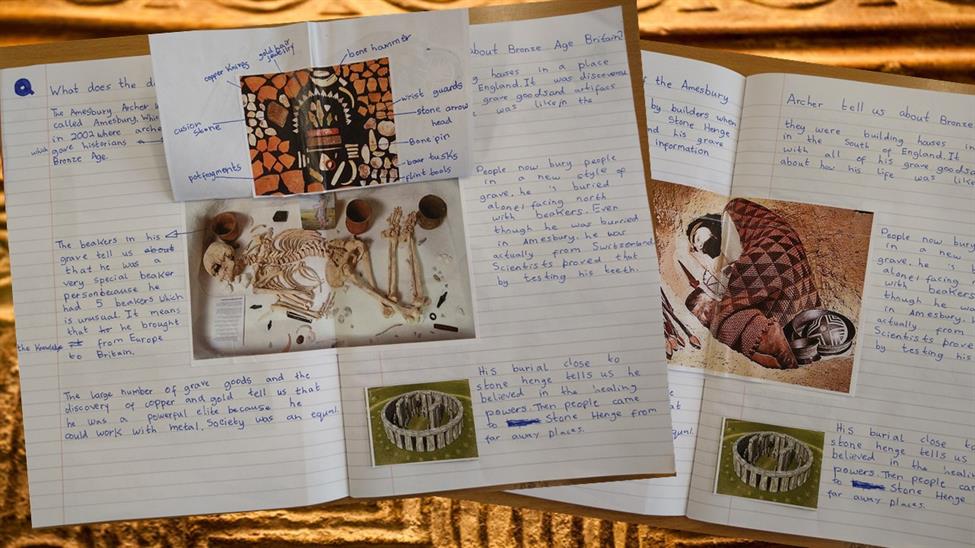 Q What does the
The Amesbury Archer
called Amesbury.
in 2002 where
which gave historians
Bronze Age.
about Bronze Age Britain?
houses in a place
England. It was discovered
grave goods and artifacs
was like in the
copper knives
gold hair
jewellry
bone hammer
wrist guards
stone arrow
head
Bone pin
boar tusks
flint tools
cusion
stone
pot fragments
The beakers in his
grave tell us about
that he was a
very special beaker
person because he
had 5 beakers which
is unusual. It means
that he brought
the knowledge from Europe
to Britain.
People now bury people
in a new style of
grave, he is buried
alone, facing north
with beakers. Even
though he was burried
in Amesbury, he was
actually from Switzerland
Scientists proved that
by testing his teeth.
The large number of grave goods and the
discovery of copper and gold tell us that
he was a powerful elite because he
could work with metal. Society was an equal.
His burial close to
stone henge tells us he
believed in the healing
powers. Then people came
to Stone Henge from
far away places.
f the Amesbury
by builders when
Stone Henge
nd his grave
information
Archer tell us about Bronze
they were building houses in
in the South of England. It
with all of his grave goods and
about how his life was like
People now bury
in a new
grave, he is
alone, facing
with beakers
though he was
in Amesbury,
actually from
Scientists proved
by testing his
qual.
His burial close to
stone henge tells us
believed in the healing
powers. Then people came
to Stone Henge
far away places.